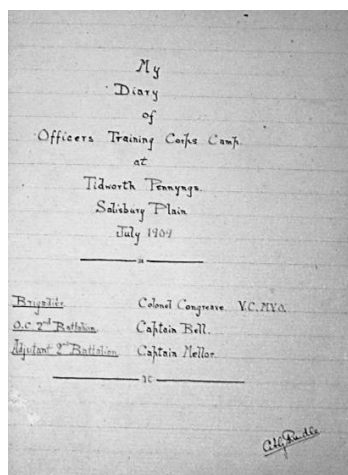 My
Diary
of
Officers Training Corps Camp.
at
Tidworth Pennyngs.
Salisbury Plain
July 1909
Brigadier Colonel Congreave. V.C. M.V.O.
O.C. 2nd Battalion Captain Bell.
Adjutant 2nd Battalion Captain Mellor.